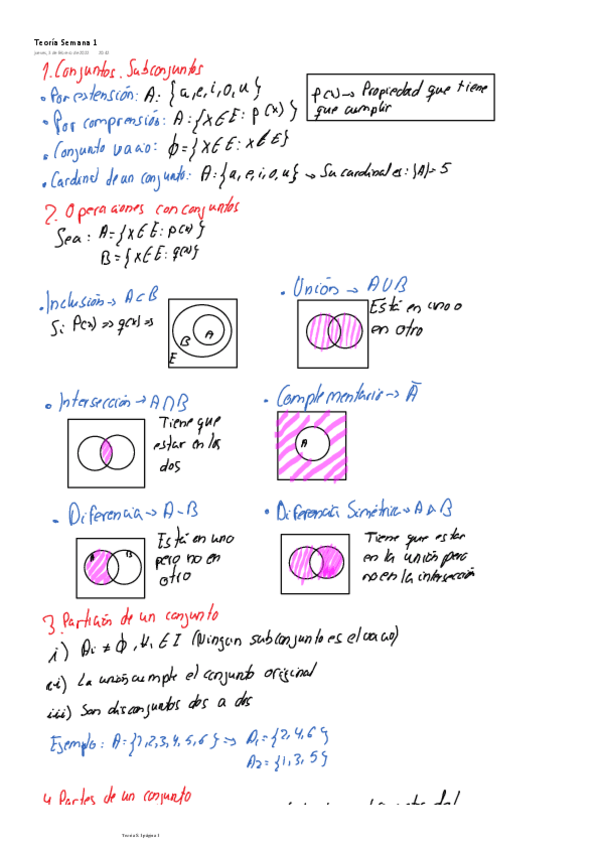 Teoría Semana 1
jueves, 3 de febrero de 2022 20:43
1. Conjuntos. Subconjuntos
• Por extensión: A: {a, e, i, o, u}
• Por comprensión: A: {x ∈ E: p(x)}
p(x) → Propiedad que tiene
que cumplir
• Conjunto vacío: ϕ = {x ∈ E: x ∉ E}
• Cardinal de un conjunto: A: {a, e, i, o, u} → Su cardinal es: |A| = 5
2. Operaciones con conjuntos
Sea: A = {x ∈ E: p(x)}
B = {x ∈ E: q(x)}
• Inclusión → A ⊂ B
Si P(x) ⇒ q(x) ⇒
B
A
E
• Unión → A ∪ B
Está en uno o
en otro
• Intersección → A ∩ B
Tiene que
estar en los
dos
• Complementario → Ā
A
• Diferencia → A - B
A B
Está en uno
pero no en
otro
• Diferencia Simétrica → A Δ B
Tiene que estar
en la unión pero
no en la intersección
3. Partición de un conjunto
i) Ai ≠ ϕ, ∀i ∈ I (Ningún subconjunto es el vacío)
ii) La unión cumple el conjunto original
iii) Son disconjuntos dos a dos
Ejemplo: A = {1, 2, 3, 4, 5, 6} ⇒ A1 = {2, 4, 6}
A2 = {1, 3, 5}
4 Partes de un conjunto